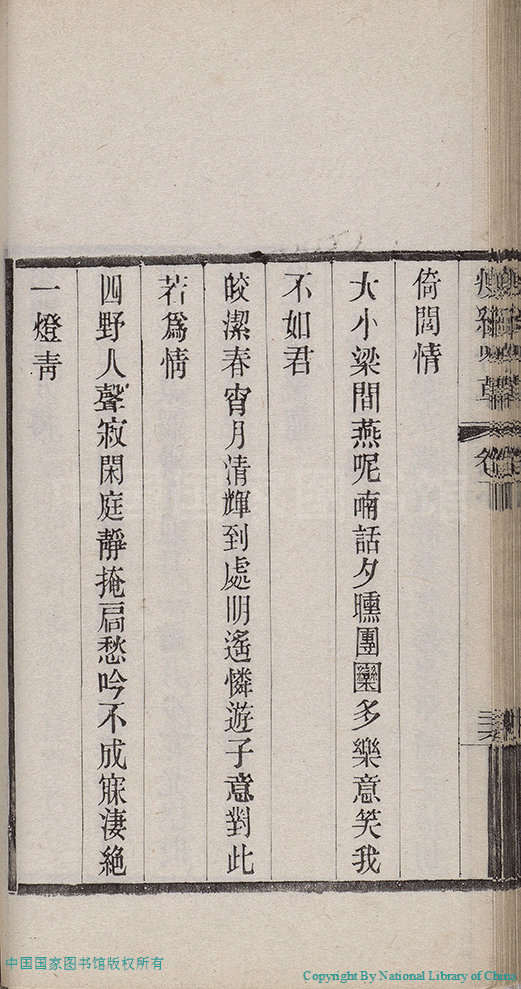 倚閭情
大小梁間燕呢喃話夕曛團圞多樂意笑我
不如君
皎潔春宵月清輝到處明遙憐遊子意對此
若爲情
四野人聲寂閑庭靜掩扃愁吟不成寐淒絶
一燈靑
中国国家图书馆版权所有
Copyright By National Library of China